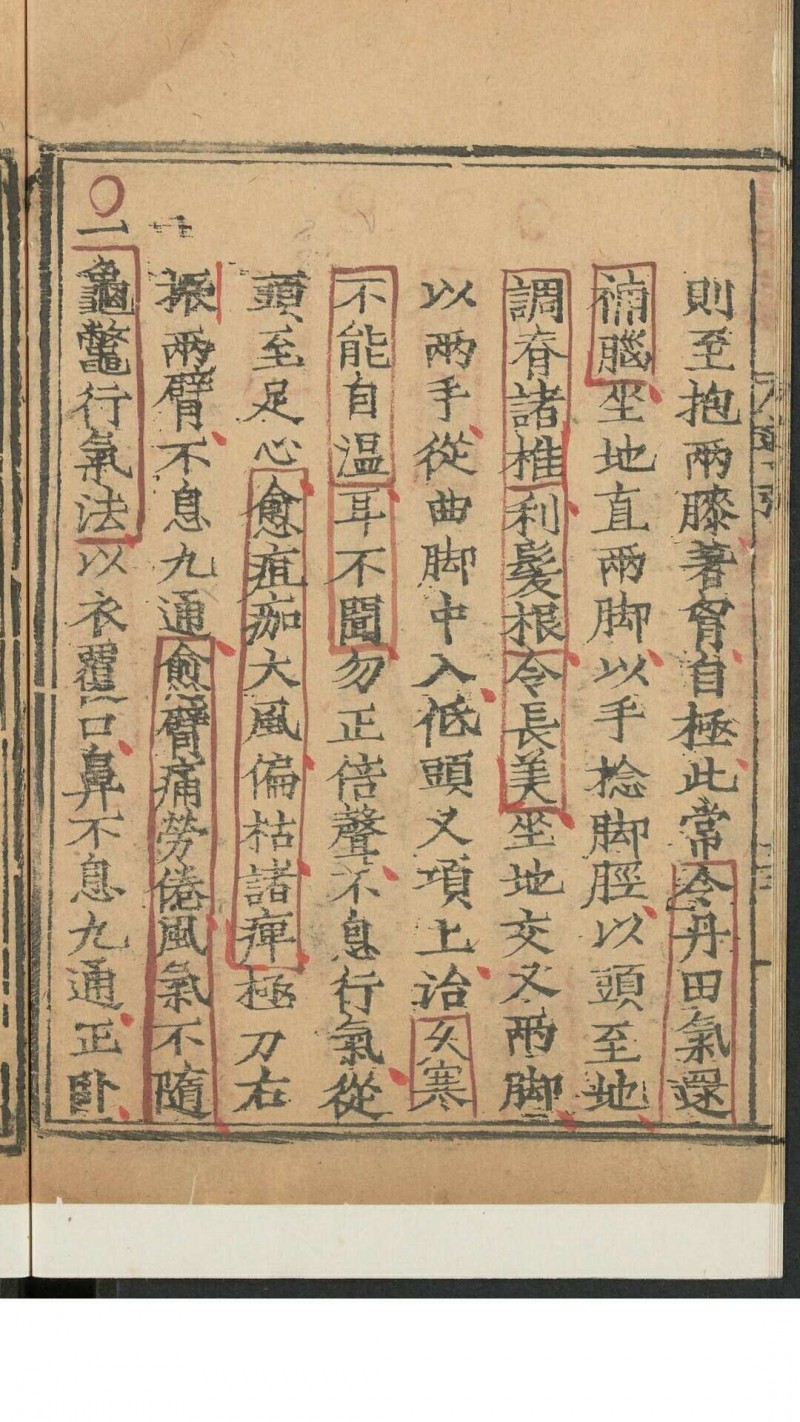 則至抱兩膝著胷自極此常令丹田氣還
補腦坐地直兩脚以手捻脚脛以頭至地
調脊諸椎利髮根令長美坐地交叉兩脚
以兩手從曲脚中入低頭叉項上治久寒
不能自温耳不聞勿正倍聲不息行氣從
頭至足心愈疽痂大風偏枯諸痺極力右
振兩臂不息九通愈臂痛勞倦風氣不隨
一龜鱉行氣法以衣覆口鼻不息九通正卧